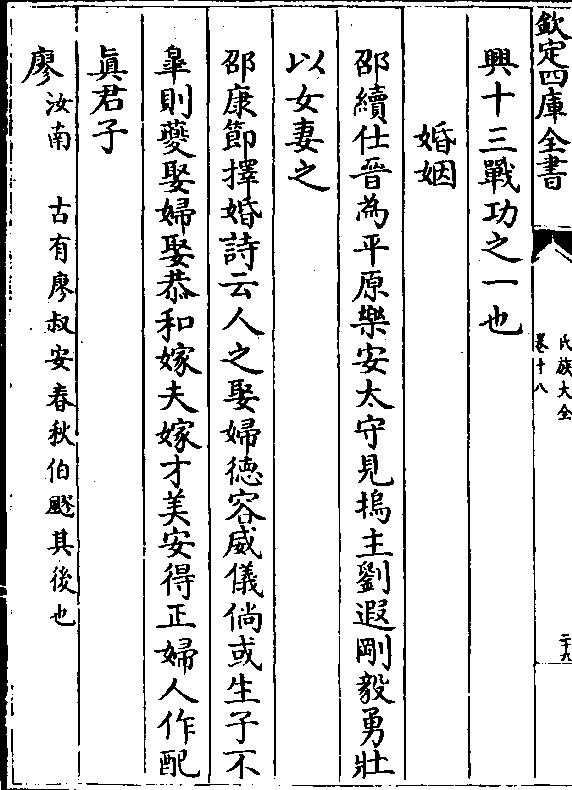 欽定四庫全書
氏族大全
卷十八
二十九
興十三戰功之一也
婚姻
邵續仕晉為平原樂安太守見塢主劉遐剛毅勇壯
以女妻之
邵康節擇婚詩云人之娶婦德容威儀倘或生子不
臯則夔娶婦娶恭和嫁夫嫁才美安得正婦人作配
真君子
廖汝南 古有廖叔安春秋伯飂其後也